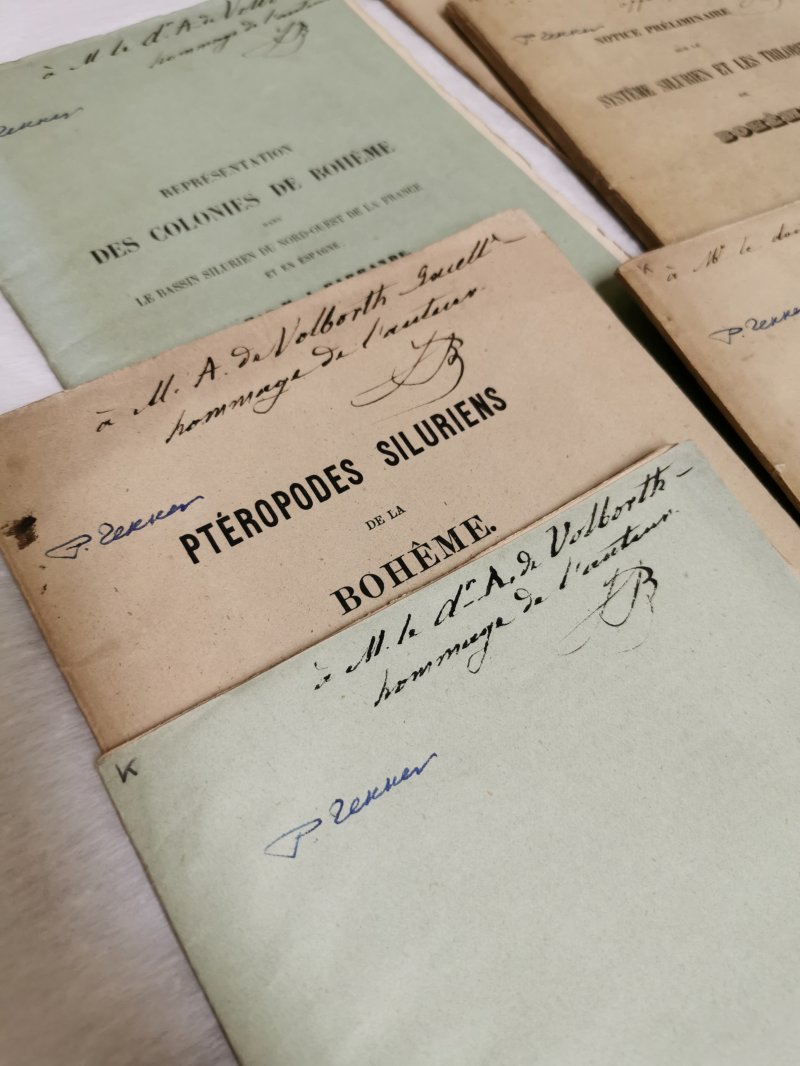 à M. le dr A. de Volb
hommage de l'auteur
JB
REPRÉSENTATION
DES COLONIES DE BOHÊME
DANS
LE BASSIN SILURIEN DU NORD-OUEST DE LA FRANCE
ET EN ESPAGNE.
NOTICE PRÉLIMINAIRE
SUR LE
SYSTÈME SILURIEN ET LES TRILOBI
DE
BOHÊM
K
à Mr le doc
à M. A. de Volborth
hommage de l'auteur.
JB
PTÉROPODES SILURIENS
DE LA
BOHÊME.
à M. le dr A. de Volborth
hommage de l'auteur.
JB
K